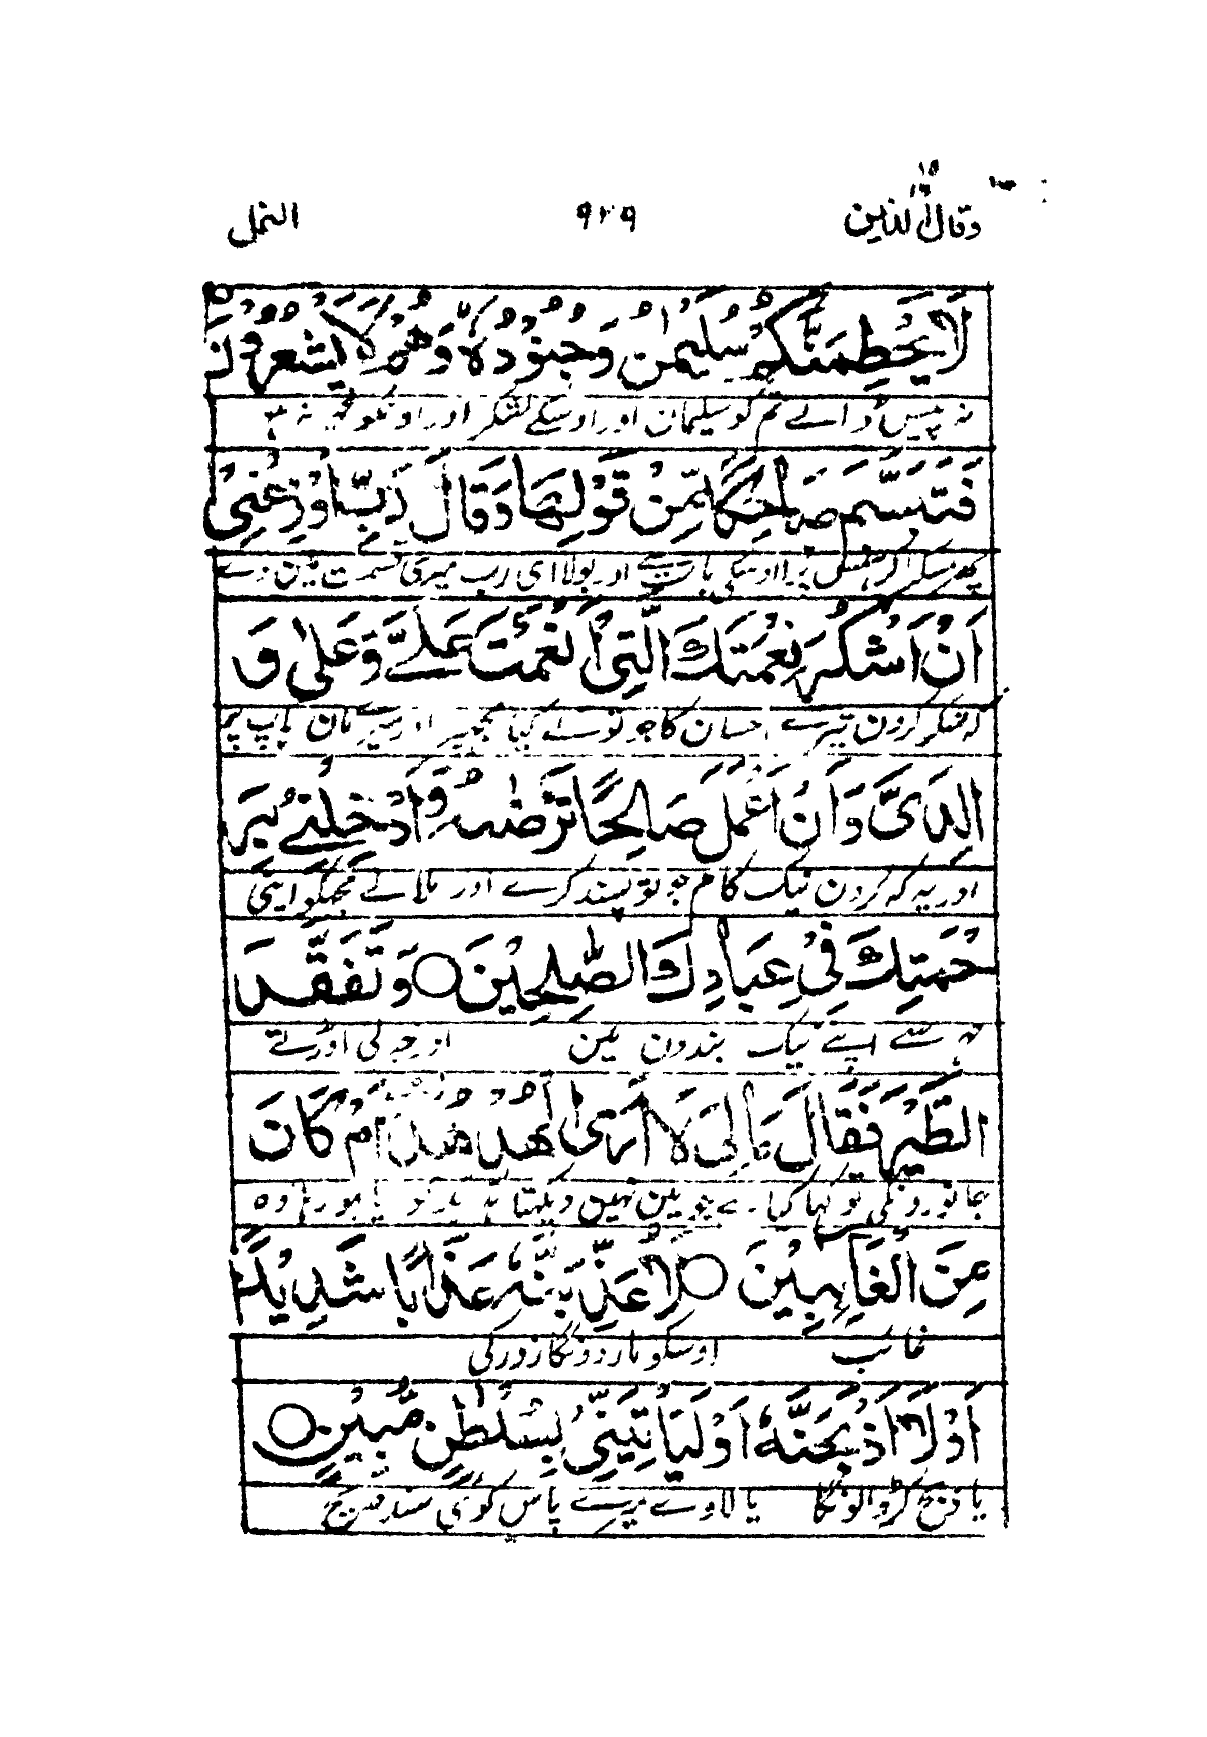 وقال الذین ۱۹ ۹۲۹ النمل
لَا يَحْطِمَنَّكُمْ سُلَيْمٰنُ وَجُنُوْدُهٗ وَهُمْ لَا يَشْعُرُوْنَ
نہ پیس ڈالے تم کو سلیمان اور اوسکے لشکر اور اونکو خبر نہ ہو
فَتَبَسَّمَ ضَاحِكًا مِّنْ قَوْلِهَا وَقَالَ رَبِّ اَوْزِعْنِيْ
پھر مسکرا کر ہنس پڑا اوسکی بات سے اور بولا ای رب میری قسمت مین دے
اَنْ اَشْكُرَ نِعْمَتَكَ الَّتِيْ اَنْعَمْتَ عَلَيَّ وَعَلٰى وَ
کہ شکر کرون تیرے احسان کا جو تونے کیا مجھپر اور میرے مان باپ پر
الِدَيَّ وَاَنْ اَعْمَلَ صَالِحًا تَرْضٰىهُ وَاَدْخِلْنِيْ بِرَ
اور یہ کہ کرون نیک کام جو تو پسند کرے اور ملا لے مجھکو اپنی
حْمَتِكَ فِيْ عِبَادِكَ الصّٰلِحِيْنَ ○ وَتَفَقَّدَ
مہر سے اپنے نیک بندون مین اور خبر لی اوڑتے
الطَّيْرَ فَقَالَ مَا لِيَ لَا اَرَى الْهُدْهُدَ اَمْ كَانَ
جانورونکی تو کہا کیا ہے جو مین نہین دیکھتا ہدہد کو یا ہو رہا وہ
مِنَ الْغَآئِبِيْنَ ○ لَاُعَذِّبَنَّهٗ عَذَابًا شَدِيْدًا
غائب اوسکو مار دونگا زور کی
اَوْ لَاَاذْبَحَنَّهٗ اَوْ لَيَاْتِيَنِّيْ بِسُلْطٰنٍ مُّبِيْنٍ ○
یا ذبح کر ڈالونگا یا لاوے میرے پاس کوئی سند صریح